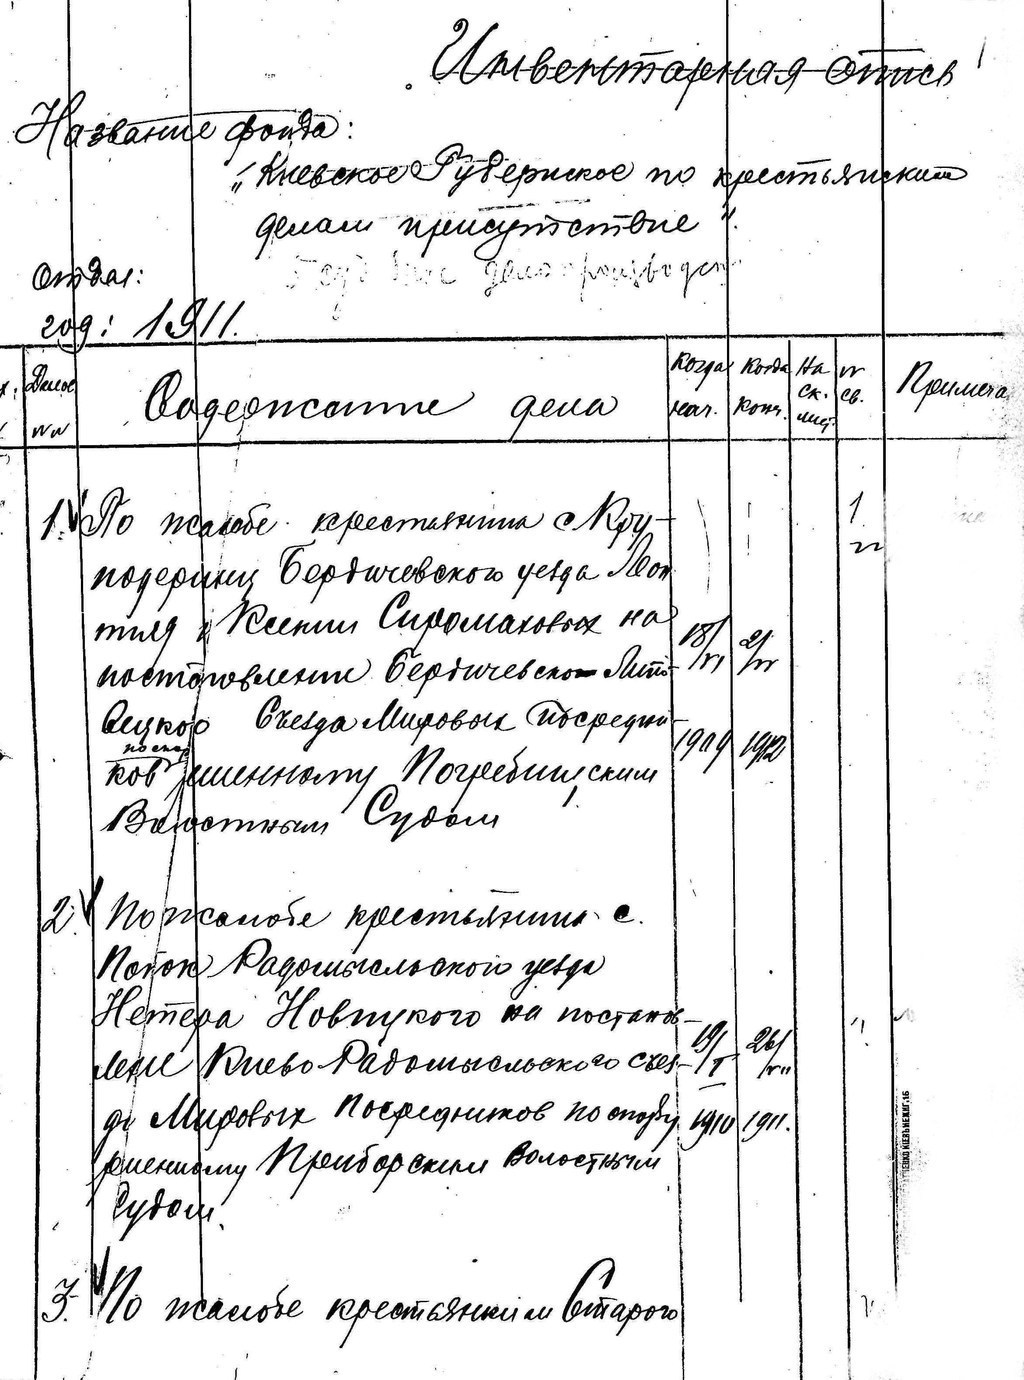 Инвентарная опись
Название фонда:
„Киевское Губернское по крестьянским
делам присутствие".
делопроизводст
Отдел:
год: 1911.
Делов №№
Содержание дела
Когда нач.
Когда конч.
На ск. лист.
№ св.
Примеча
1. По жалобе крестьянина с Кру-
подеринц Бердичевского уезда Леон
тия и Ксении Сиромаховых на
постановление Бердичевско- Липо-
вецкого Съезда Мировых посредни-
ков по спор решенному Погребищским
Волостным Судом
18/VI 1909
2/IV 1912
1
2. По жалобе крестьянина с.
Поток Радомысльского уезда
Петера Новицкого на постанов-
ление Киево Радомысльского съез-
да Мировых Посредников по спору
решенному Приборским Волостным
Судом.
19/I 1910
26/VII 1911.
"
3. По жалобе крестьянки м Старого